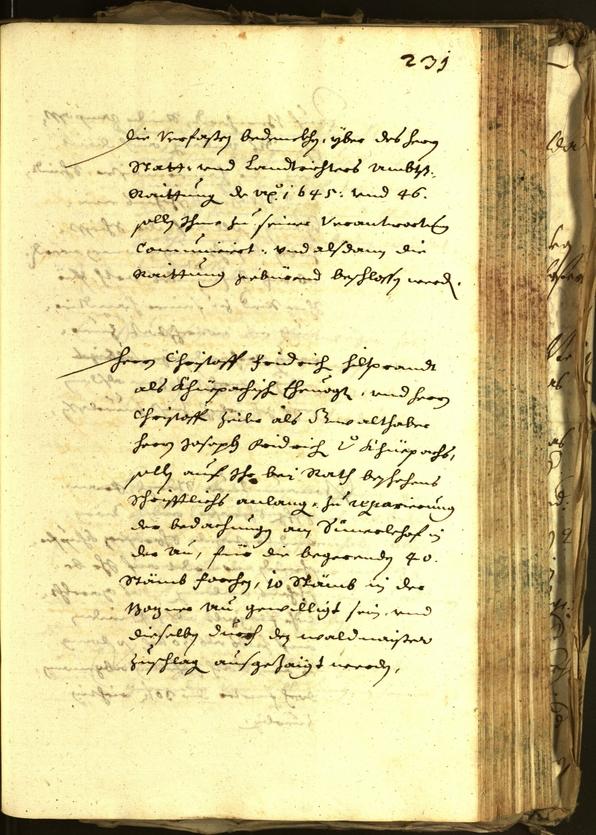 231
die verfasten bedenckhen, yber des herrn
Statt: vnd Landtrichters Ambts
Raittung de A.o 1645: vnd 46.
sollen Ihme zu seiner verantworten
Communiciert: vnd alsdann die
Raittung gebürend beschlossen werden.
Herrn Christoff Fridrich Hiltprandt
als Khüepachisch Gewalt, vnd herrn
Christoff Zeiler als Gwalthaber
herrn Joseph Fridrich v Khüepachs,
sollen auf Ihr bei Rath beschehens
Schrifftlichs anlangen, zu reparierung
der bedachungen am hof in
der Au, für die begerenden 40.
Stämb forchen, 10 Stämb in der
Pozner Au gewilligt sein, vnd
dieselben durch den waldmaister
Zuschlag ausgezaigt werden.